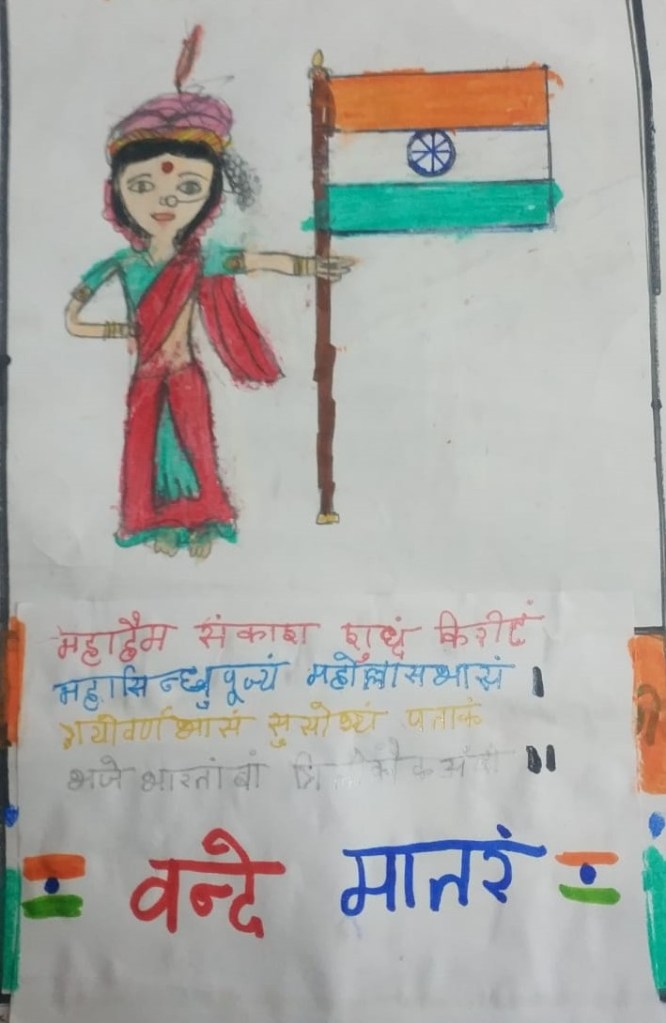 महाहैम संकाश शुध्दं किरीटं
महासिन्धुपूज्यं महोल्लासभासं ।
त्रयीवर्णभासं सुसोभ्यं पताकं
भजे भारतांबां ॥
वन्दे मातरं